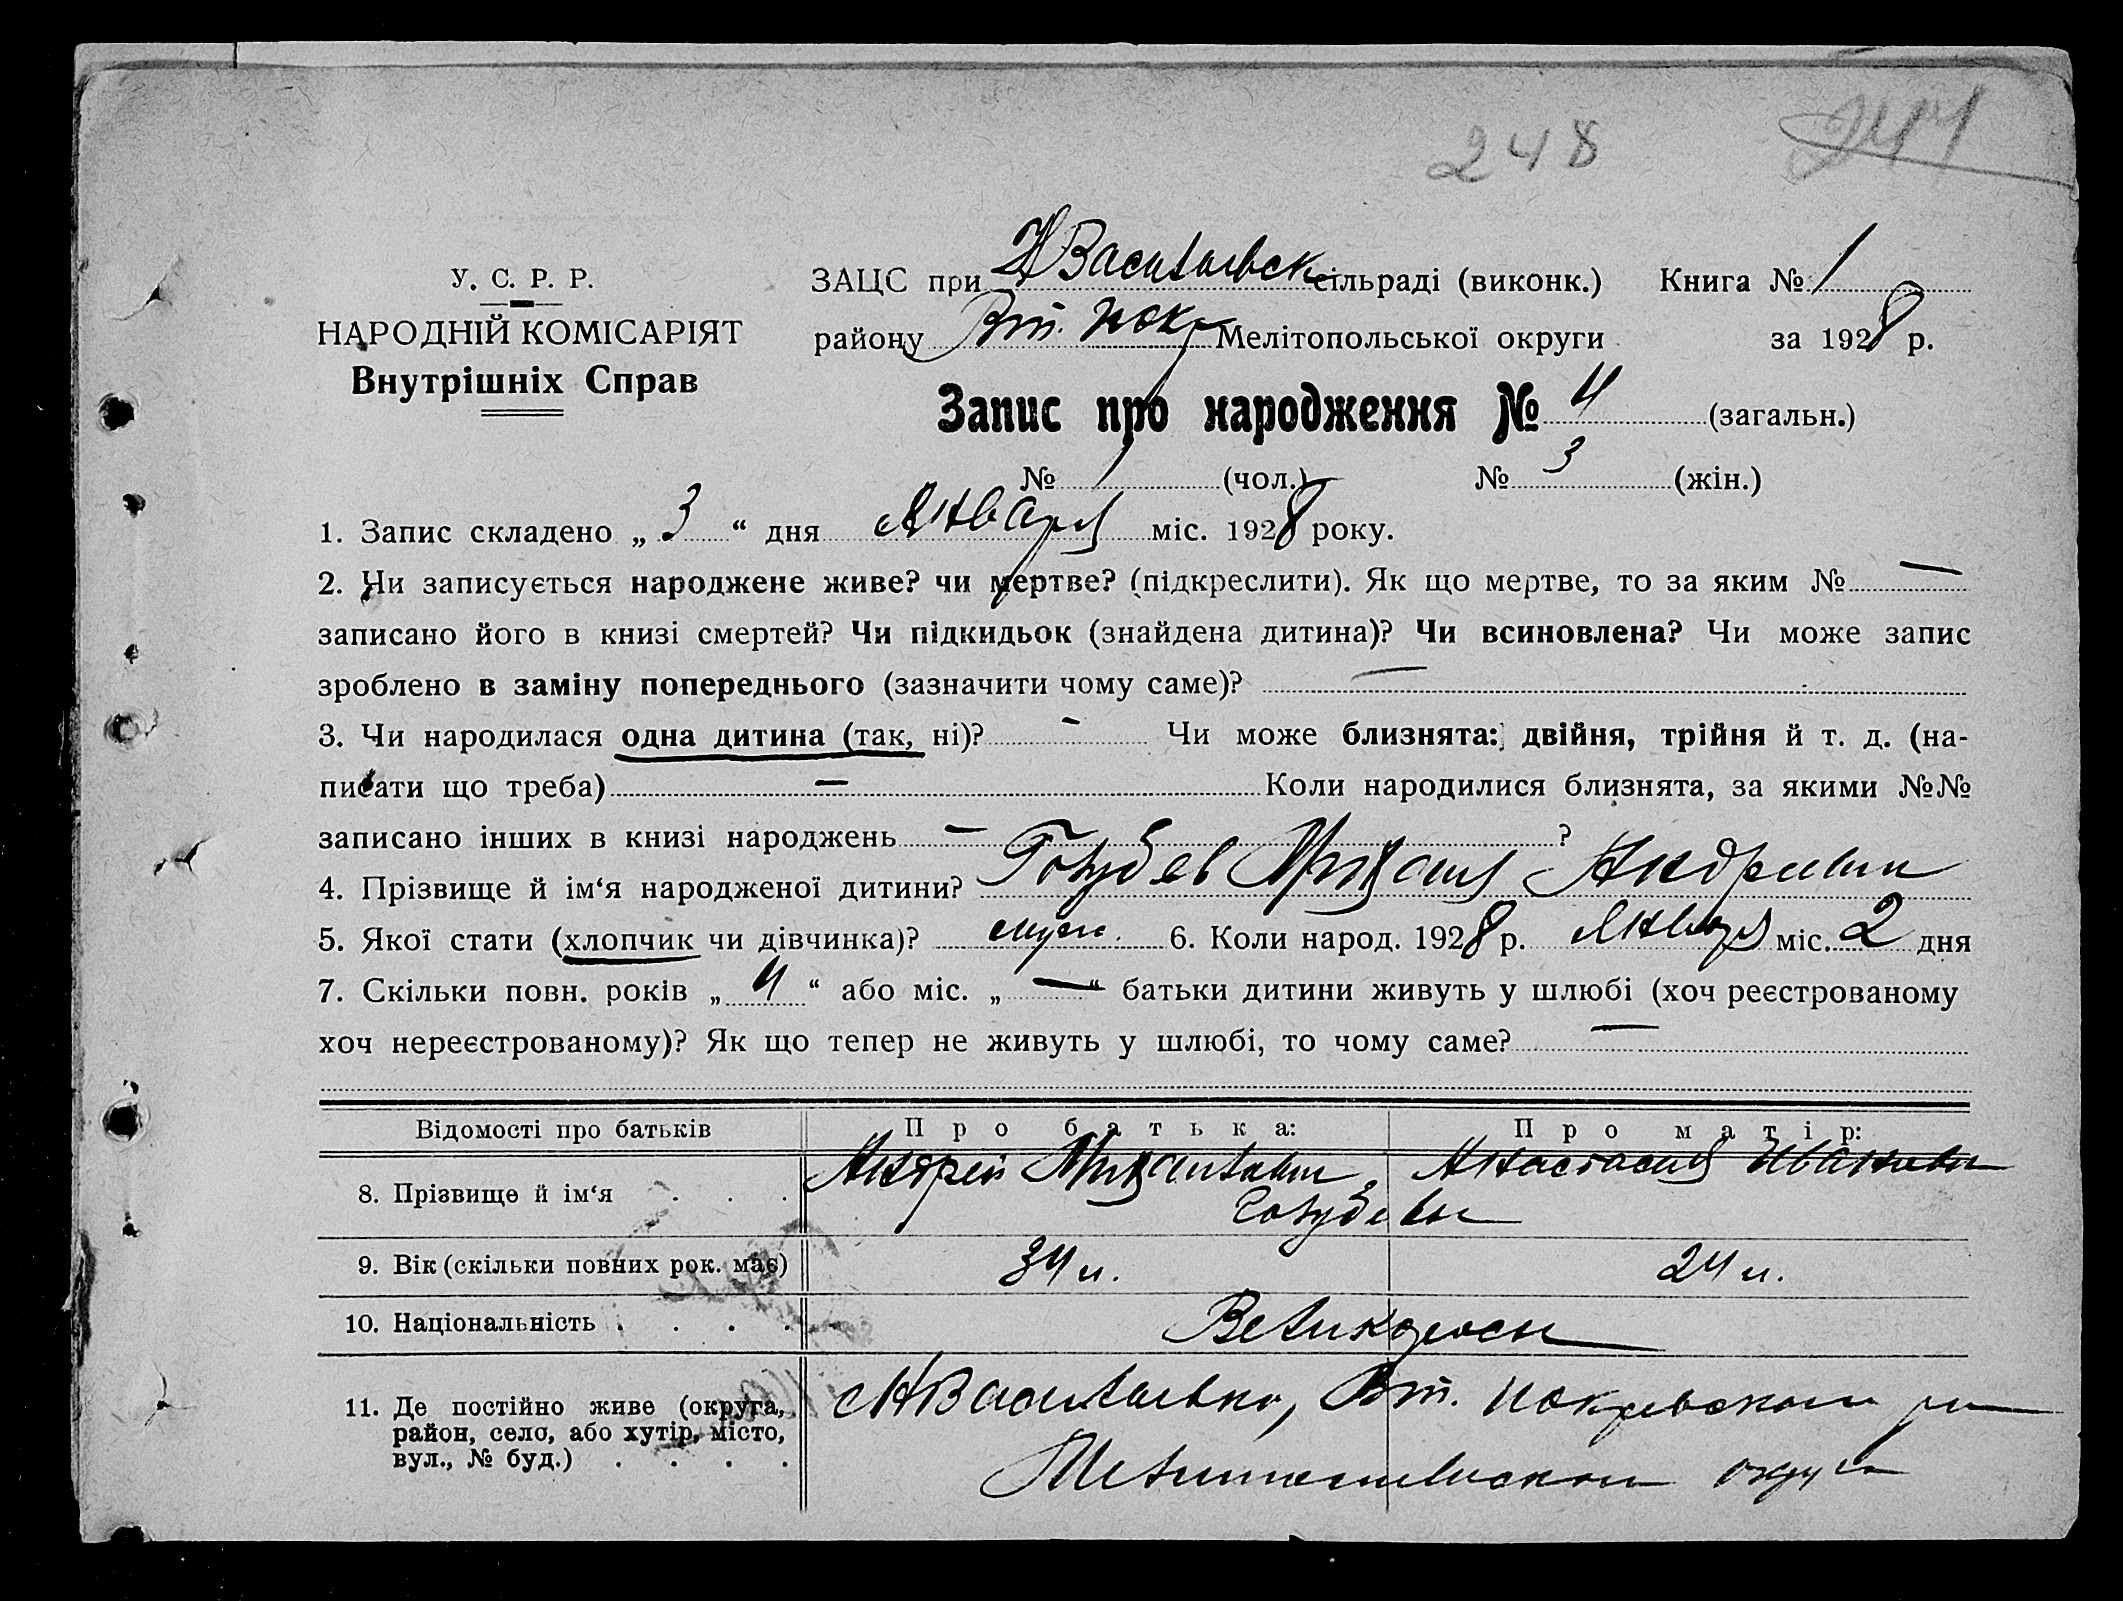 248 244
У. С. Р. Р.
НАРОДНІЙ КОМІСАРІЯТ
Внутрішніх Справ
ЗАЦС при НВасильевск сільраді (виконк.) Книга № 1
району Вт. Покр Мелітопольської округи за 1928 р.
Запис про народження № 4 (загальн.)
№ 1 (чол.) № 3 (жін.)
1. Запис складено „ 3 “ дня Января міс. 1928 року.
2. Чи записується народжене живе? чи мертве? (підкреслити). Як що мертве, то за яким № —
записано його в книзі смертей? Чи підкидьок (знайдена дитина)? Чи всиновлена? Чи може запис
зроблено в заміну попереднього (зазначити чому саме)? —
3. Чи народилася одна дитина (так, ні)? — Чи може близнята: двійня, трійня й т. д. (на-
писати що треба) — Коли народилися близнята, за якими №№
записано інших в книзі народжень — ?
4. Прізвище й ім‘я народженої дитини? Голубев Михаил Андреевич
5. Якої стати (хлопчик чи дівчинка)? муж. 6. Коли народ. 1928 р. Января міс. 2 дня
7. Скільки повн. років „ 4 “ або міс. „ — “ батьки дитини живуть у шлюбі (хоч реєстрованому
хоч нереєстрованому)? Як що тепер не живуть у шлюбі, то чому саме? —
Відомості про батьків Про батька: Про матір:
8. Прізвище й ім‘я . . . Андрей Михайлович Анастасия Ивановна
Голубевы
9. Вік (скільки повних рок. має) 34 л. 24 л.
10. Національність . . . . Великоросы
11. Де постійно живе (округа, район, село, або хутір, місто, вул., № буд.) . . . . НВасильевка, Вт. Покровского р
Мелитопольского округа